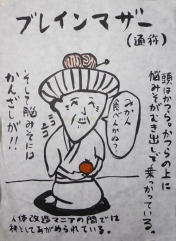 ブレインマザー
(通称)
頭はかつら。かつらの上に
脳みそがむき出しで乗かっている。
みかん
食べんかね？
そして脳みそには
かんざしが!!
人体改造マニアの間では
神としてあがめられている。